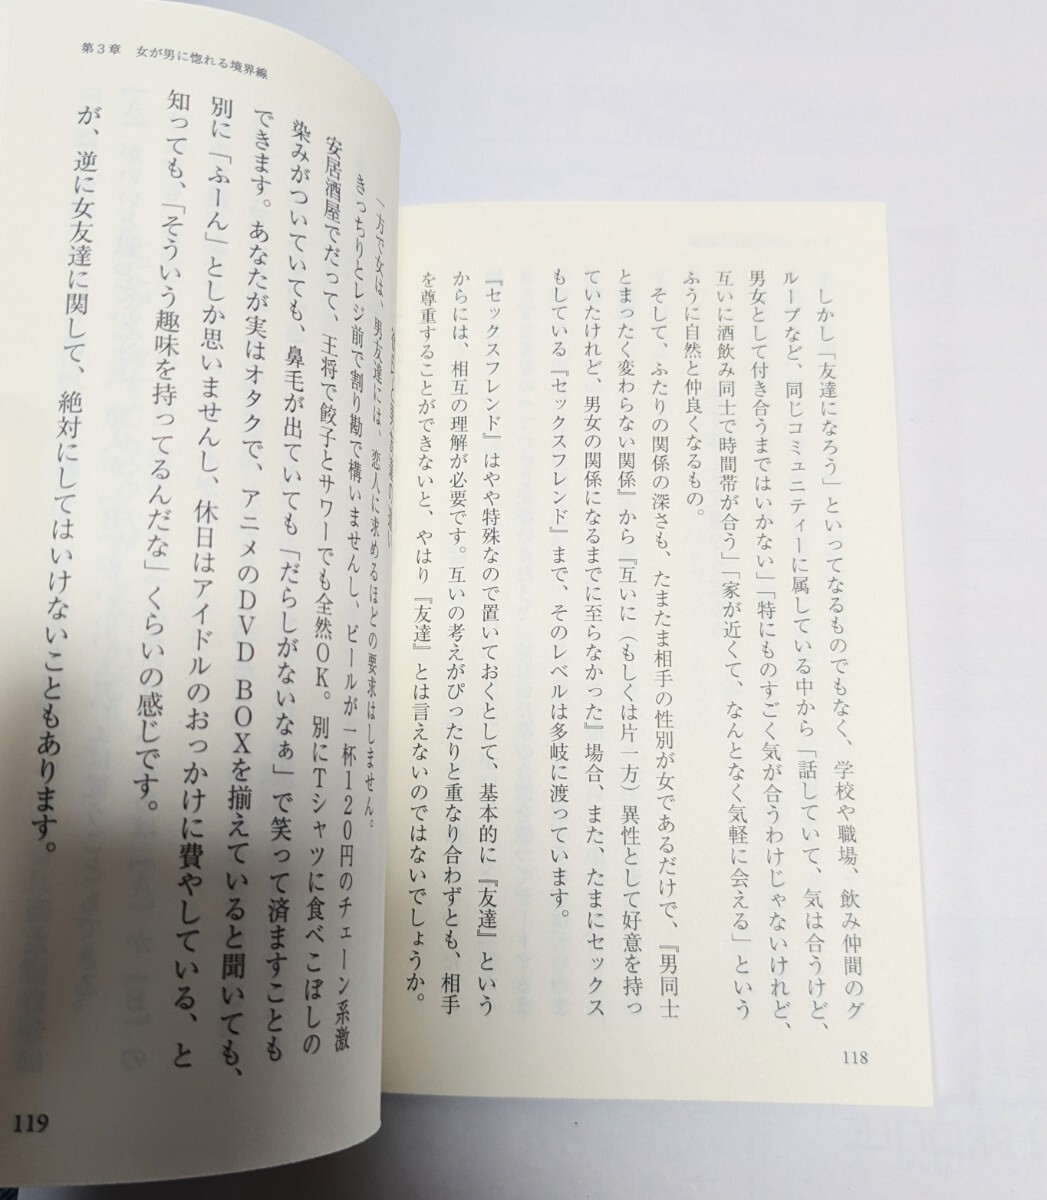 しかし「友達になろう」といってなるものでもなく、学校や職場、飲み仲間のグ
ループなど、同じコミュニティーに属している中から「話していて、気は合うけど、
男女として付き合うまではいかない」「特にものすごく気が合うわけじゃないけれど、
互いに酒飲み同士で時間帯が合う」「家が近くて、なんとなく気軽に会える」という
ふうに自然と仲良くなるもの。
そして、ふたりの関係の深さも、たまたま相手の性別が女であるだけで、『男同士
とまったく変わらない関係』から『互いに（もしくは片一方）異性として好意を持っ
ていたけれど、男女の関係になるまでに至らなかった』場合、また、たまにセックス
もしている『セックスフレンド』まで、そのレベルは多岐に渡っています。
『セックスフレンド』はやや特殊なので置いておくとして、基本的に『友達』という
からには、相互の理解が必要です。互いの考えがぴったりと重なり合わずとも、相手
を尊重することができないと、やはり『友達』とは言えないのではないでしょうか。
118
第3章 女が男に惚れる境界線
一方で女は、男友達には、恋人に求めるほどの要求はしません。
きっちりとレジ前で割り勘で構いませんし、ビールが一杯120円のチェーン系激
安居酒屋でだって、王将で餃子とサワーでも全然OK。別にTシャツに食べこぼしの
染みがついていても、鼻毛が出ていても「だらしがないなぁ」で笑って済ますことも
できます。あなたが実はオタクで、アニメのDVD BOXを揃えていると聞いても、
別に「ふーん」としか思いませんし、休日はアイドルのおっかけに費やしている、と
知っても、「そういう趣味を持ってるんだな」くらいの感じです。
が、逆に女友達に関して、絶対にしてはいけないこともあります。
119